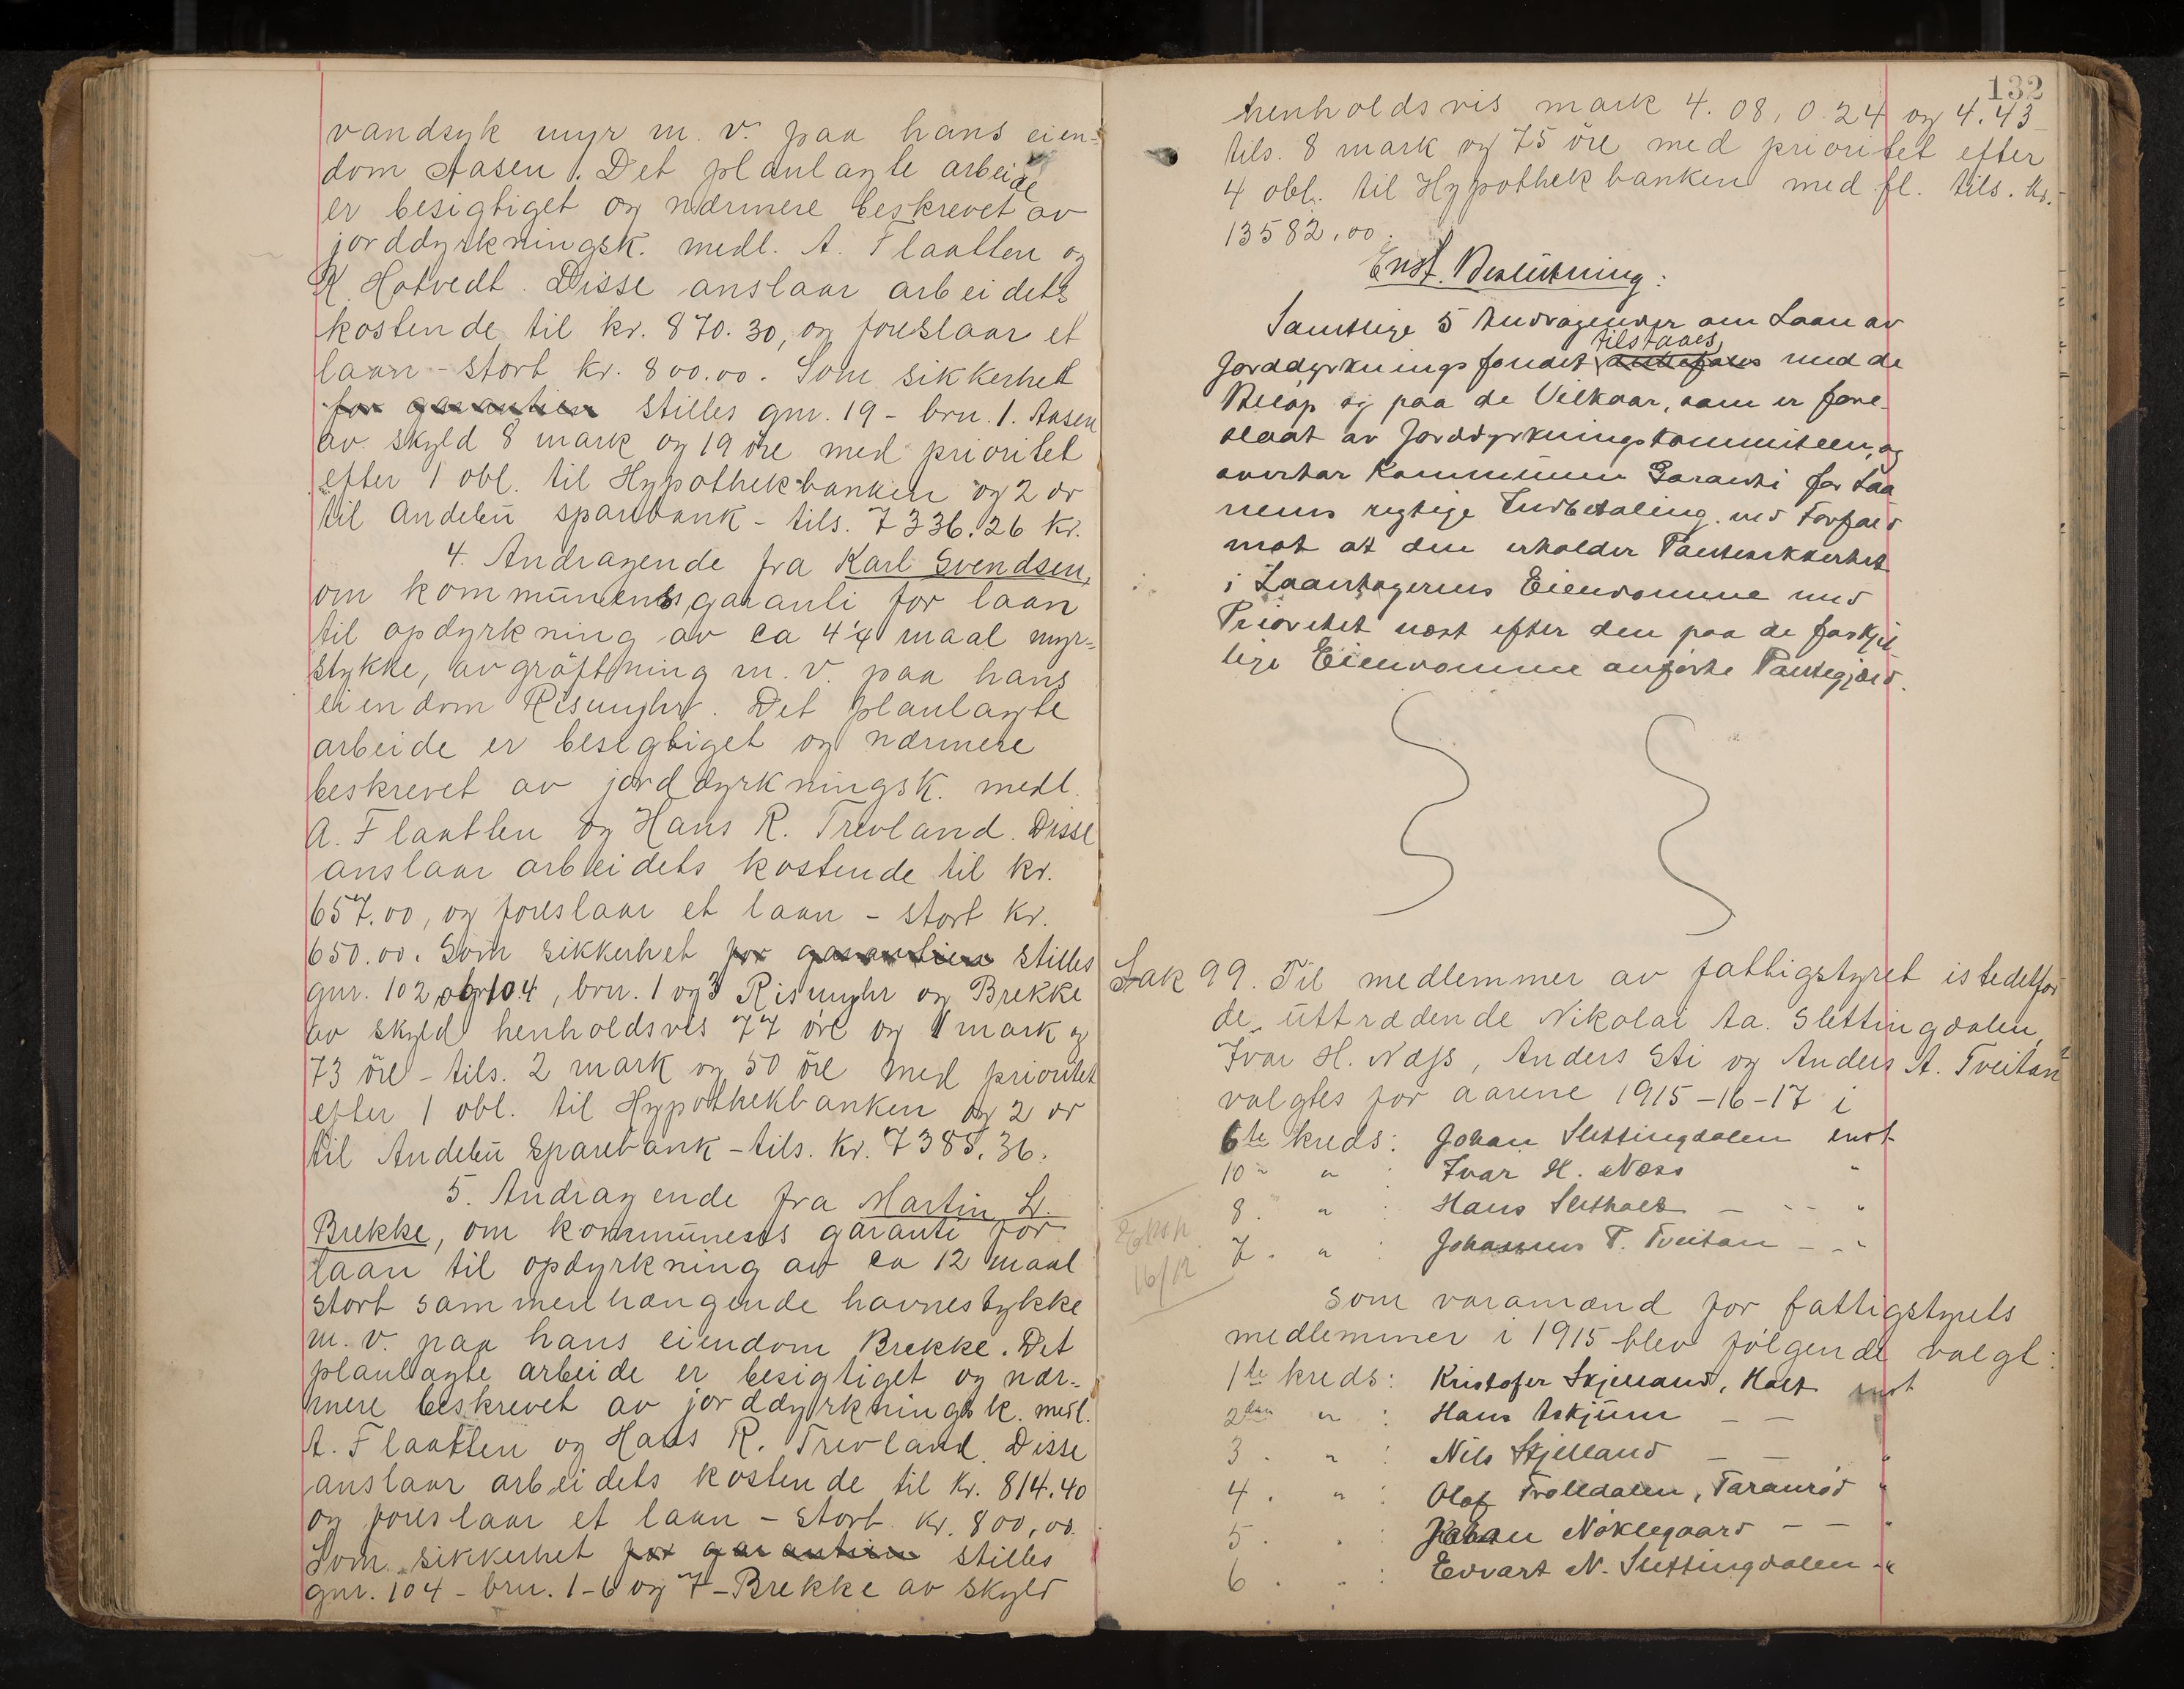 vandsyk myr m. v. paa hans eien=
dom Aasen. Det planlagte arbeide
er besigtiget og nærmere beskrevet av
jorddyrkningsk. medl. A. Flaatten og
K. Hotvedt. Disse anslaar arbeidets
kostende til kr. 870.30, og foreslaar et
laan - stort kr. 800.00. Som sikkerhet
for garantien stilles gnr. 19 - brn. 1. Aasen
av skyld 8 mark og 19 öre med prioritet
efter 1 obl. til Hypothekbanken og 2 do
til Andebu sparebank - tils. 7336.26 kr.
4. Andragende fra Karl Svendsen,
om kommunens garanti for laan
til opdyrkning av ca 4 1/4 maal myr=
stykke, avgröftning m. v. paa hans
eiendom Rismyhr. Det planlagte
arbeide er besigtiget og nærmere
beskrevet av jorddyrkningsk. medl.
A. Flaatten og Hans R. Trevland. Disse
anslaar arbeidets kostende til kr.
657.00, og foreslaar et laan - stort kr.
650.00. Som sikkerhet for garantien stilles
gnr. 102 og 104, brn. 1 og 3 Rismyhr og Brekke
av skyld henholdsvis 77 öre og 1 mark og
73 öre - tils. 2 mark og 50 öre med prioritet
efter 1 obl. til Hypothekbanken og 2 do
til Andebu Sparebank - tils. kr. 7385.36.
5. Andragende fra Martin L.
Brekke, om kommunens garanti for
laan til opdyrkning av ca 12 maal
stort sammenhængende havnestykke
m. v. paa hans eiendom Brekke. Det
planlagte arbeide er besigtiget og nær=
mere beskrevet av jorddyrkningsk. medl.
A. Flaatten og Hans R. Trevland. Disse
anslaar arbeidets kostende til kr. 814.40
og foreslaar et laan - stort kr. 800,00.
Som sikkerhet for garantien stilles
gnr. 104 - brn. 1-6 og 7 - Brekke av skyld
132
henholdsvis mark 4.08, 0.24 og 4.43
tils. 8 mark og 75 öre med prioritet efter
4 obl. til Hypothekbanken med fl. tils. kr.
13582,00.
Enst. Beslutning:
Samtlige 5 Andragender om Laan av
tilstaaes
Jorddyrkningsfondet anbefales med de
Beløp og paa de Vilkaar, som er fore-
slaat av Jorddyrkningskommiteen, og
overtar Kommunen Garanti for Laa
nenes rigtige Indbetaling ved Forfald
mot at den erholder Pantesikkerhet
i Laantagerens Eiendomme med
Prioritet næst efter den paa de forskjel
lige Eiendomme anførte Pantegjæld.
Sak 99. Til medlemmer av fattigstyret istedetfor
de uttrædende Nikolai Aa. Slettingdalen,
Ivar H. Næss, Anders Sti og Anders A. Tveitan
valgtes for aarene 1915-16-17 i
6te kreds: Johan Slettingdalen enst
10 " " : Ivar H. Næss "
8. " : Hans Slettholt — - - "
7. " : Johannes P. Tveitan - - "
16/12
Som varamænd for fattigstyrets
medlemmer i 1915 blev følgende valgt:
1te kreds: Kristofer Skjelland, Holt enst
2den " : Hans Askjum — —
3. " : Nils Skjelland — — "
4. " : Olaf Trolldalen, Taranröd "
5. " : Johan Nöklegaard — — "
6. " : Edvart N. Slettingdalen - "